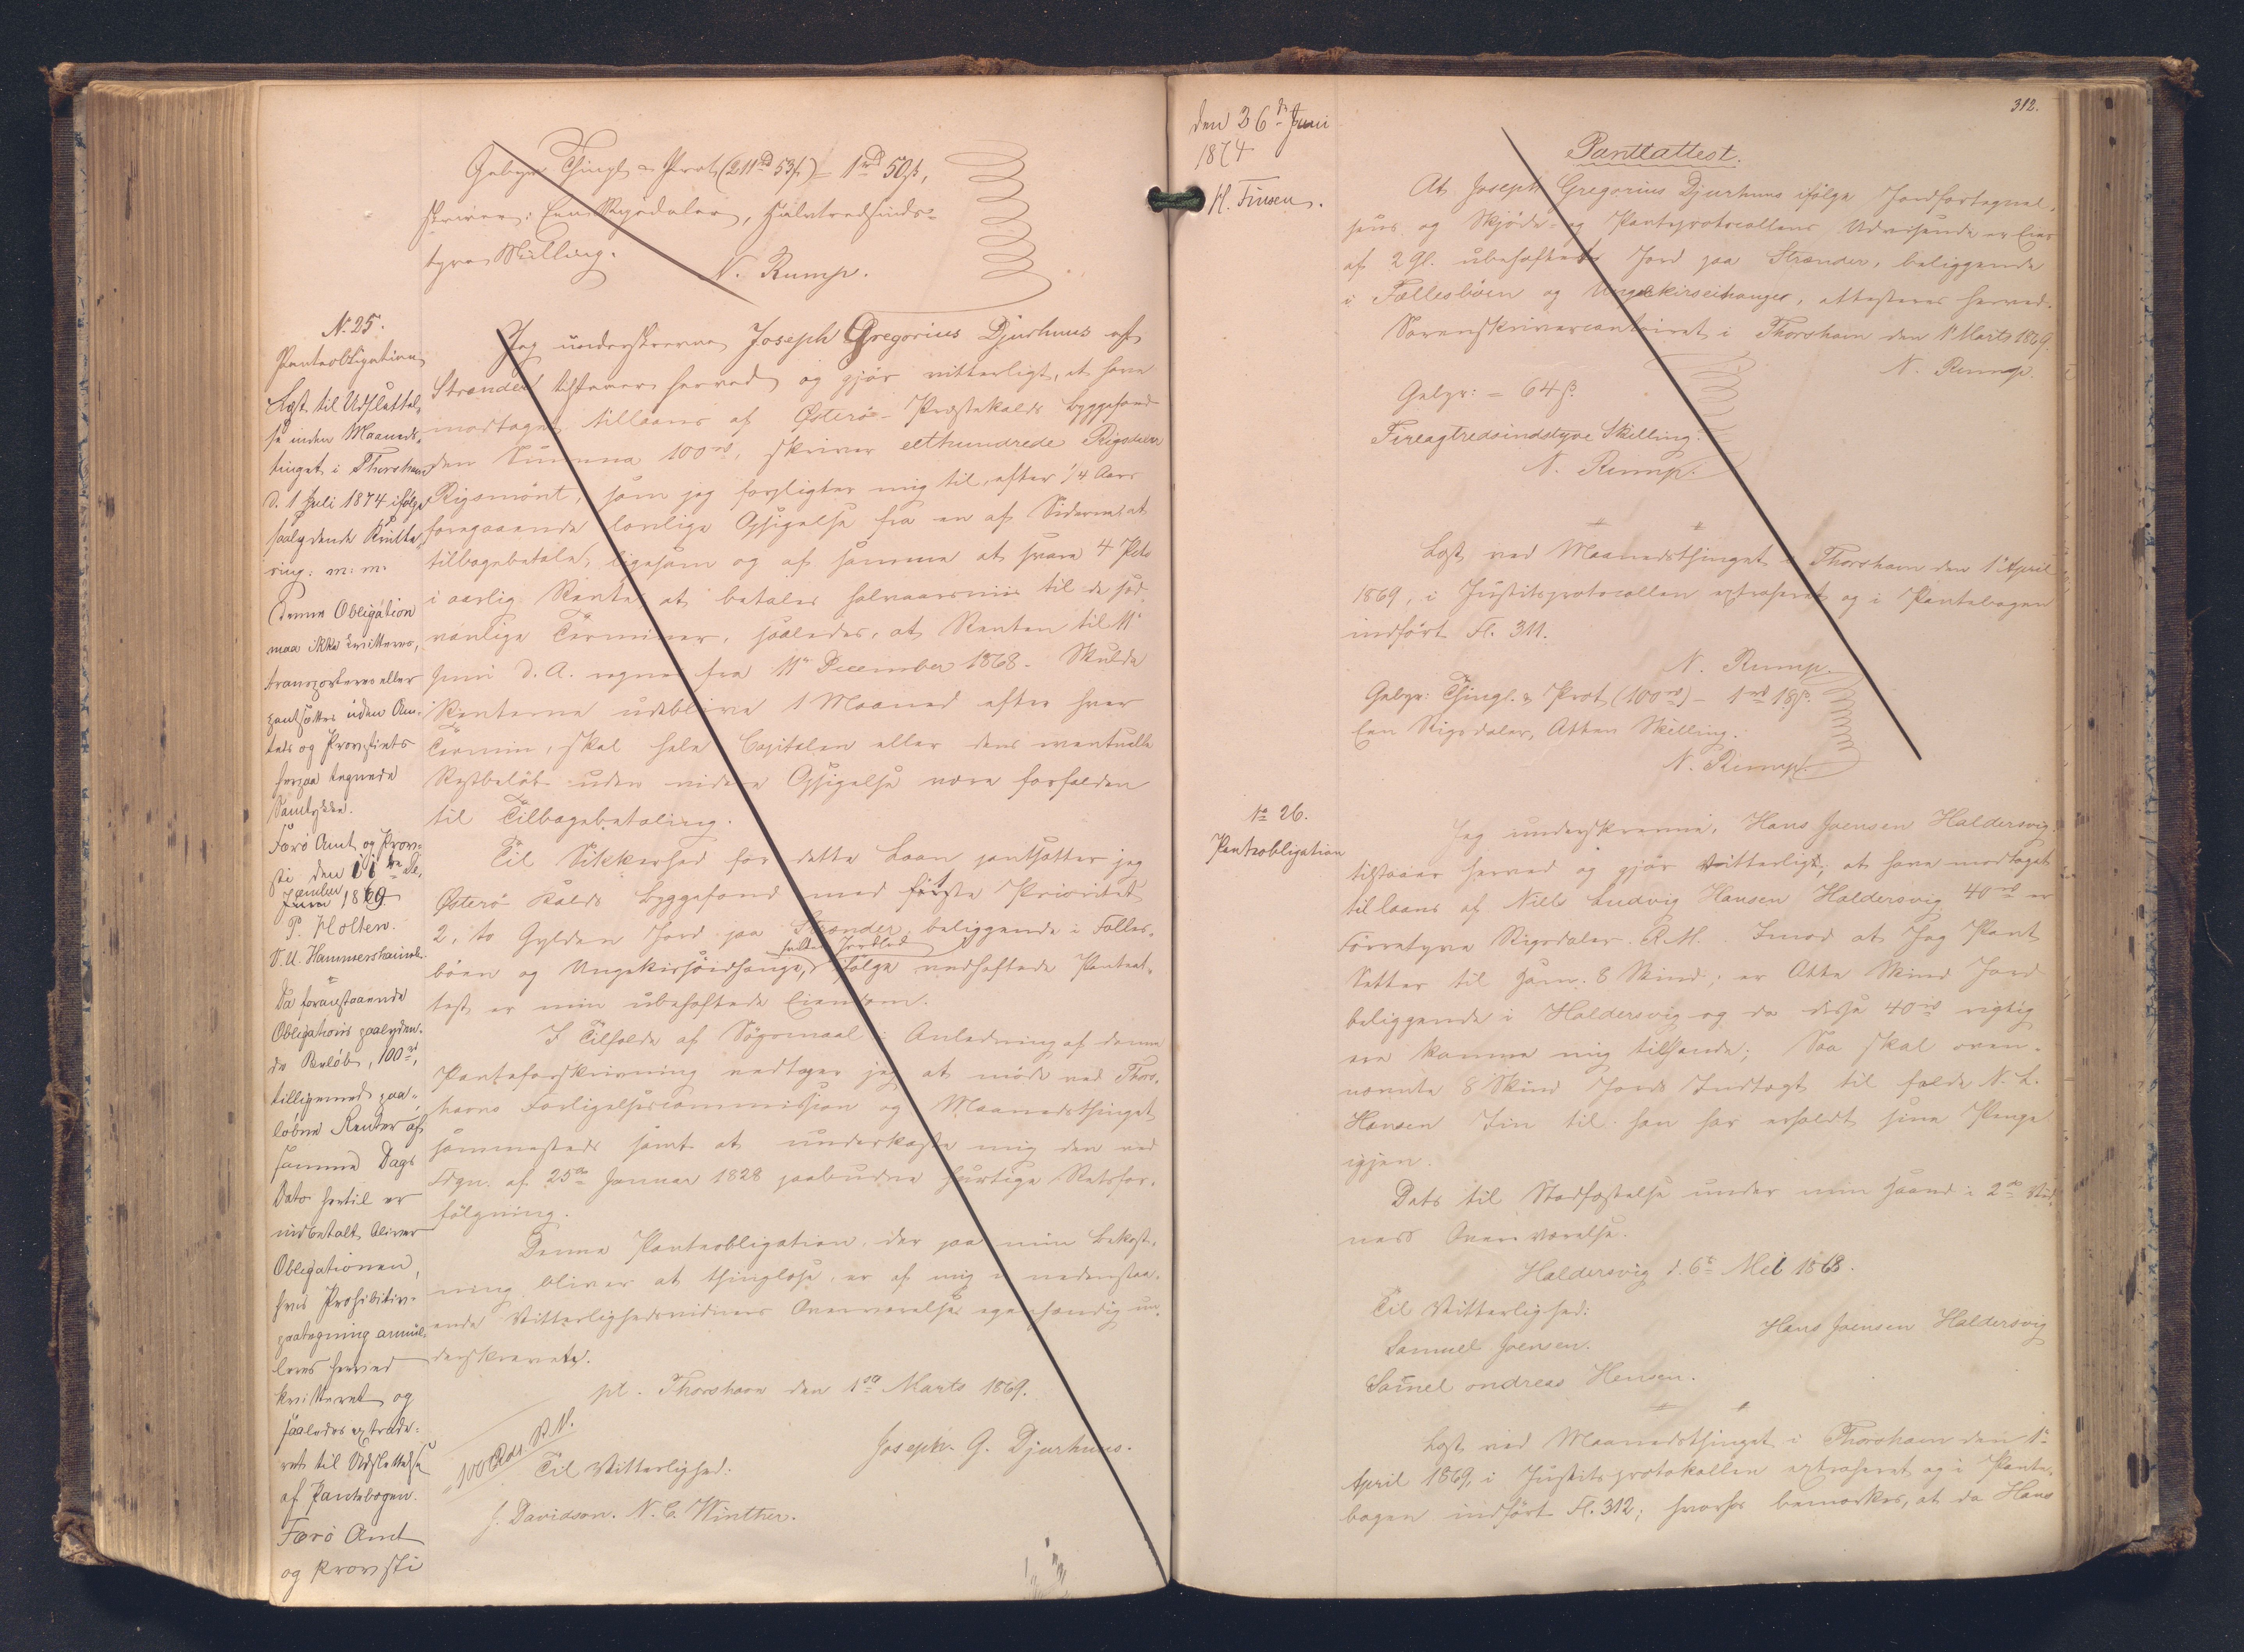 Gebyr Thingl & Prot (211rd 53ß) = 1rd 50ß,
skriver: Een Rigsdaler, Halvtredsinds-
tyve Skilling.
N. Rump.
No 25.
Panteobligation
Læst til Udslettel-
se inden Maaneds-
tinget i Thorshavn
d. 1 Juli 1874 ifølge
saalydende Kvitte-
ring: m: m.
Denne Obligation
maa ikke kvitteres,
transporteres eller
pantsættes uden Am-
tets og Provstiets
herpaa tegnede
Samtykke.
Færø Amt og Prov-
sti den 11te De-
cember 1869
P. Holten.
V. U. Hammershaimb.
Da foranstaaende
Obligations paalyden-
de Beløb, 100rd,
tilligemed paa-
løbne Renter af
samme Dags
Dato hertil er
indbetalt bliver
Obligationen,
hvis Prohibitiv-
paategning annul-
leres herved
kvitteret og
saaledes extrade-
ret til Udslettelse
af Pantebogen.
Færø Amt
og Provsti
Jeg underskrevne Joseph Gregorius Djurhuus af
Strænder tilstaaer herved og gjør vitterligt, at have
modtaget tillaans af Østerø Præstekalds Byggefond
den Summa 100rd, skriver eethundrede Rigsdaler
Rigsmønt, som jeg forpligter mig til, efter 1/4 Aars
foregaaende lovlige Opsigelse fra en af Siderne at
tilbagebetale, ligesom og af samme at svare 4 Pcto
i aarlig Rente at betales halvaarsviis til de sæd-
vanlige Terminer, saaledes, at Renten til 11te
Juni d. A. regnes fra 11te December 1868. Skulde
Renterne udeblive 1 Maaned efter hver
Termin, skal hele Capitalen eller dens eventuelle
Restbeløb uden videre Opsigelse være forfalden
til Tilbagebetaling.
Til Sikkerhed for dette Laan pantsætter jeg
Østerø Kalds Byggefond med første Prioritet
2, to Gylden Jord paa Strænder, beliggende i Fælles-
bøen og Ungekirseidhauge, hvilken Jordlod
ifølge vedhæftede Panteat-
test er min ubehæftede Eiendom.
I Tilfælde af Søgsmaal i Anledning af denne
Panteforskrivning vedtager jeg at møde ved Thors-
havns Forligelsescommission og Maanedsthinget
sammesteds samt at underkaste mig den ved
Frdgn. af 25de Januar 1828 paabudne hurtige Retsfor-
følgning.
Denne Panteobligation, der paa min Bekost-
ning bliver at thinglæse, er af mig i nedenstaa-
ende Vitterlighedsvidners Overværelse egenhændig un-
derskrevet.
pt. Thorshavn den 1ste Marts 1869.
100 Rdlr. R.M.
Joseph. G. Djurhuus.
Til Vitterlighed:
J. Davidson. N. C. Winther.
den 26de Juni
1874
H. Finsen.
312.
Panttattest.
At Joseph Gregorius Djurhuus ifølge Jordfortegnel-
sens og Skjøde- og Panteprotocollens Udvisende er Eier
af 2 Gl. ubehæftede Jord paa Strænder, beliggende
i Fællesbøen og Ungekirseihauger, attesteres herved.
Sorenskrivercontoiret i Thorshavn den 1 Marts 1869.
N. Rump.
Gebyr: = 64ß.
Fireogtredsindstyve Skilling.
N. Rump.
Læst ved Maanedsthinget i Thorshavn den 1ste April
1869, i Justitsprotocollen extraheret og i Pantebogen
indført Fl. 311.
N. Rump.
Gebyr: Thingl. & Prot (100rd) - 1rd 18ß.
Een Rigsdaler, Atten Skilling.
N. Rump.
No 26.
Panteobligation
Jeg underskrevne, Hans Joensen Haldersvig
tilstaaer herved og gjør vitterligt; at have modtaget
til laans af Niels Ludvig Hansen Haldersvig 40rd er
Førretyve Rigsdaler. R. M. Imod at Jeg Pant
Setter til Ham. 8 Skind; er Otte Skind Jord
beliggende i Haldersvig og da disse 40rd rigtig
ere komme mig tilhænde; Saa skal oven-
nævnte 8 Skind Jords Indtægt til falde N. L.
Hansen Iin til han har erholdt sine Penge
igjen.
Dets til Stadfæstelse under min Haand i 2de Vid-
ners Over værelse.
Haldersvig d. 6te Mei 1868.
Til Vitterlighed:
Hans Joensen Haldersvig
Samuel Joensen.
Samel ondreas Hensen.
Læst ved Maanedsthinget i Thorshavn den 1ste
April 1869, i Justitsprotokollen extraheret og i Pante-
bogen indført Fl. 312; hvorhos bemærkes, at da Hans